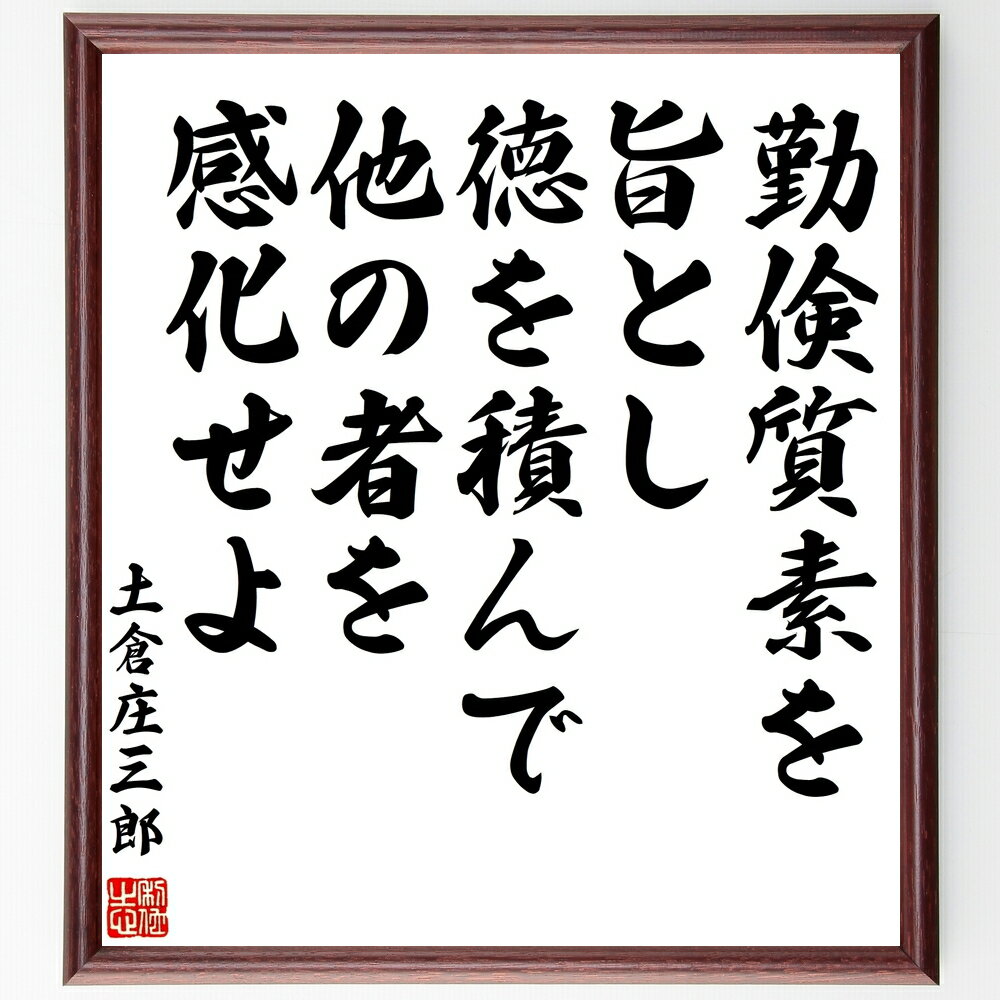 勤倹質素を
旨とし
徳を積んで
他の者を
感化せよ
土倉庄三郎